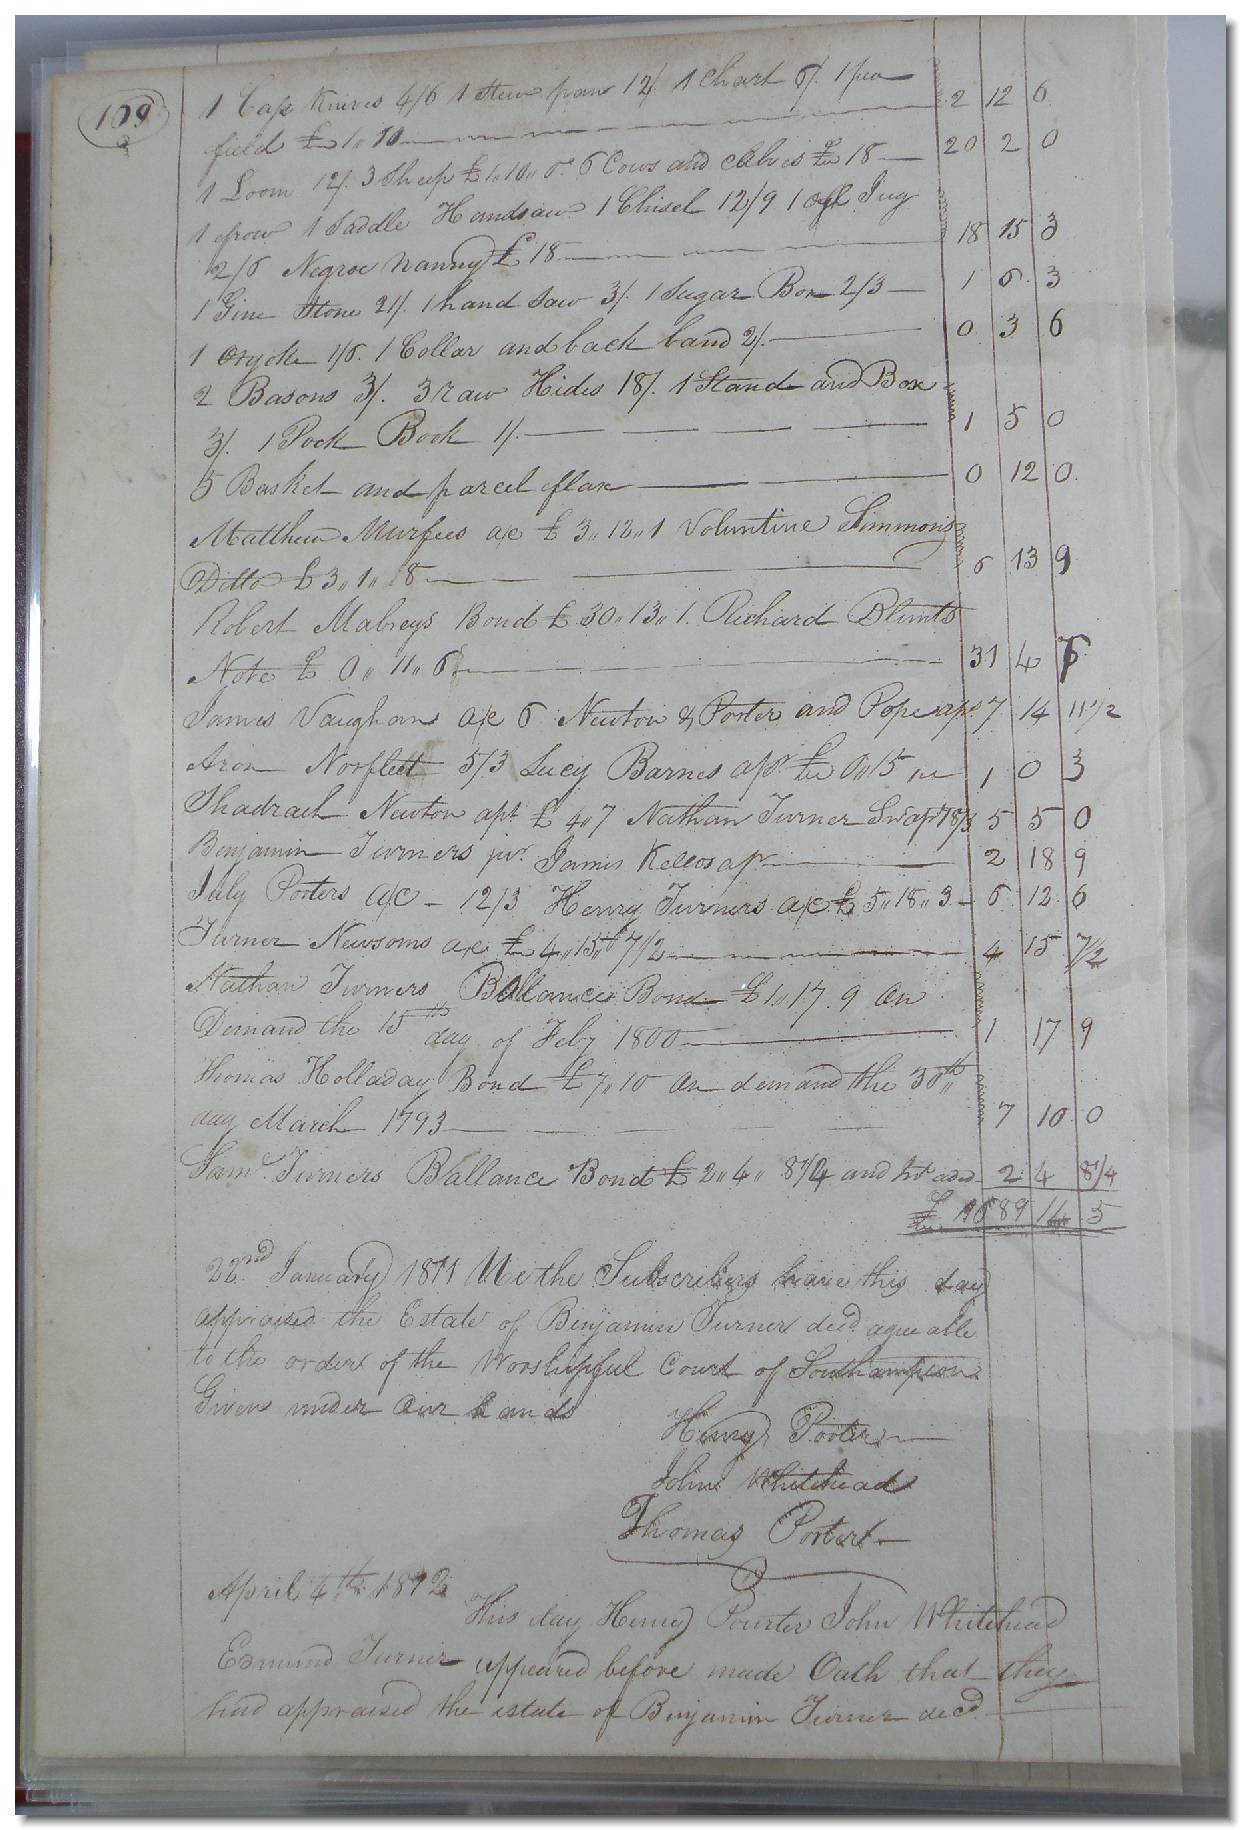 109
1 Case Knives 4/6 1 Stew pan 12/ 1 Chart 6/. 1 pea
field £1"10 2 12 6
1 Loom 12/. 3 Sheep £1"10"0 6 Cows and Calves £18 20 2 0
1 frow 1 Saddle Handsaw 1 Chisel 12/9 1 Jug
2/6 Negroe Nanny £18 18 15 3
1 Stone 21/. 1 hand Saw 3/. 1 Sugar Box 2/3 1 6 3
1 1/6. 1 Collar and back band 2/. 0 3 6
2 Basons 3/. 3 raw Hides 18/. 1 Stand and Box
3/. 1 Pock Book 1/. 1 5 0
5 Basket and parcel flax 0 12 0
Matthew Murfees a/c £3"12"1 Voluntine Simmons
Ditto £3"1"8 6 13 9
Robert Mabreys Bond £30"13"1. Richard Blunts
Note £0"11"6 31 4
James Vaughans a/c 6 Newton & Porter and Pope 7 14 11 1/2
Aron Norfleet 5/3 Lucy Barnes £0"15 1 0 3
Shadrach Newton apt £4"7 Nathan Turner 5 5 0
Benjamin Turners jur. James Kellos 2 18 9
July Porters a/c - 12/3 Henry Turners a/c £5"18"3 6 12 6
Turner Newsoms a/c £4"15" 7 1/2 4 15 7 1/2
Nathan Turners Ballance Bond £1"17.9 On
Demand the 15th day of Feby 1800 1 17 9
Thomas Holladay Bond £7"10 On demand the 30th
day March 1793 7 10 0
Saml. Turners Ballance Bond £2"4"8 1/4 and 2 4 8 1/4
£ 89 14 5
22nd January 1811 We the Subscribers have this day
appraised the Estate of Binjamin Turner decd. agreeable
to the order of the Worshipful Court of Southampton
Given under Our hands
Henry Porter
John Whitehead
Thomas Porter
April 4th
This day Henry Pourter John Whitehead
Edmund Turner appeared before made Oath that they
had appraised the estate of Binjamin Turner decd.